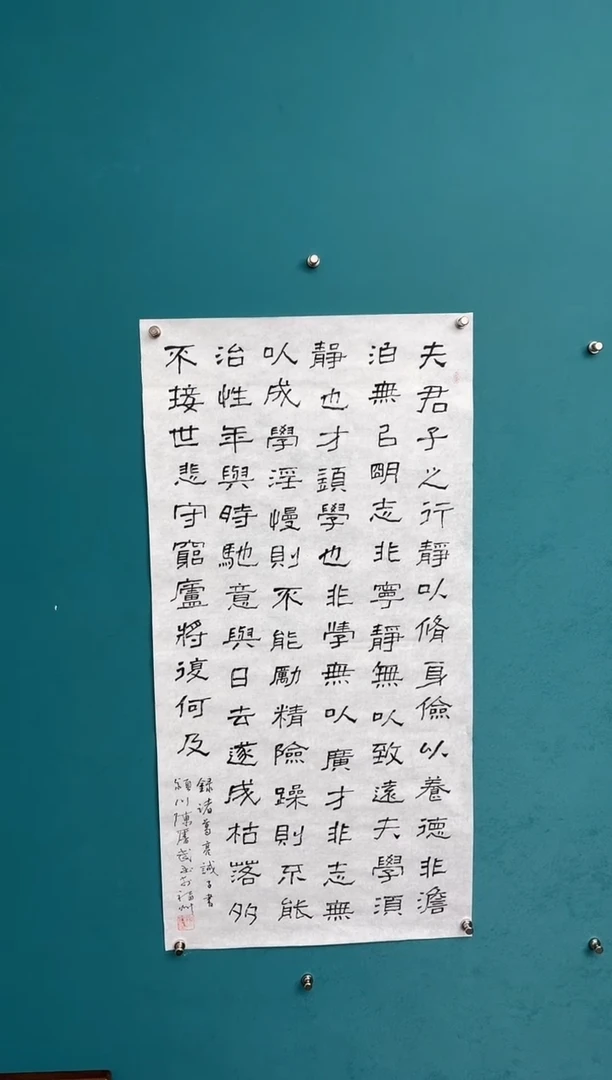 夫君子之行靜以脩身儉以養德非澹
泊無㠯明志非寧靜無以致遠夫學須
靜也才須學也非學無以廣才非志無
以成學淫慢則不能勵精險躁則不能
治性年與時馳意與日去遂成枯落多
不接世悲守窮廬將復何及
錄諸葛亮誡子書
潁川陳福州